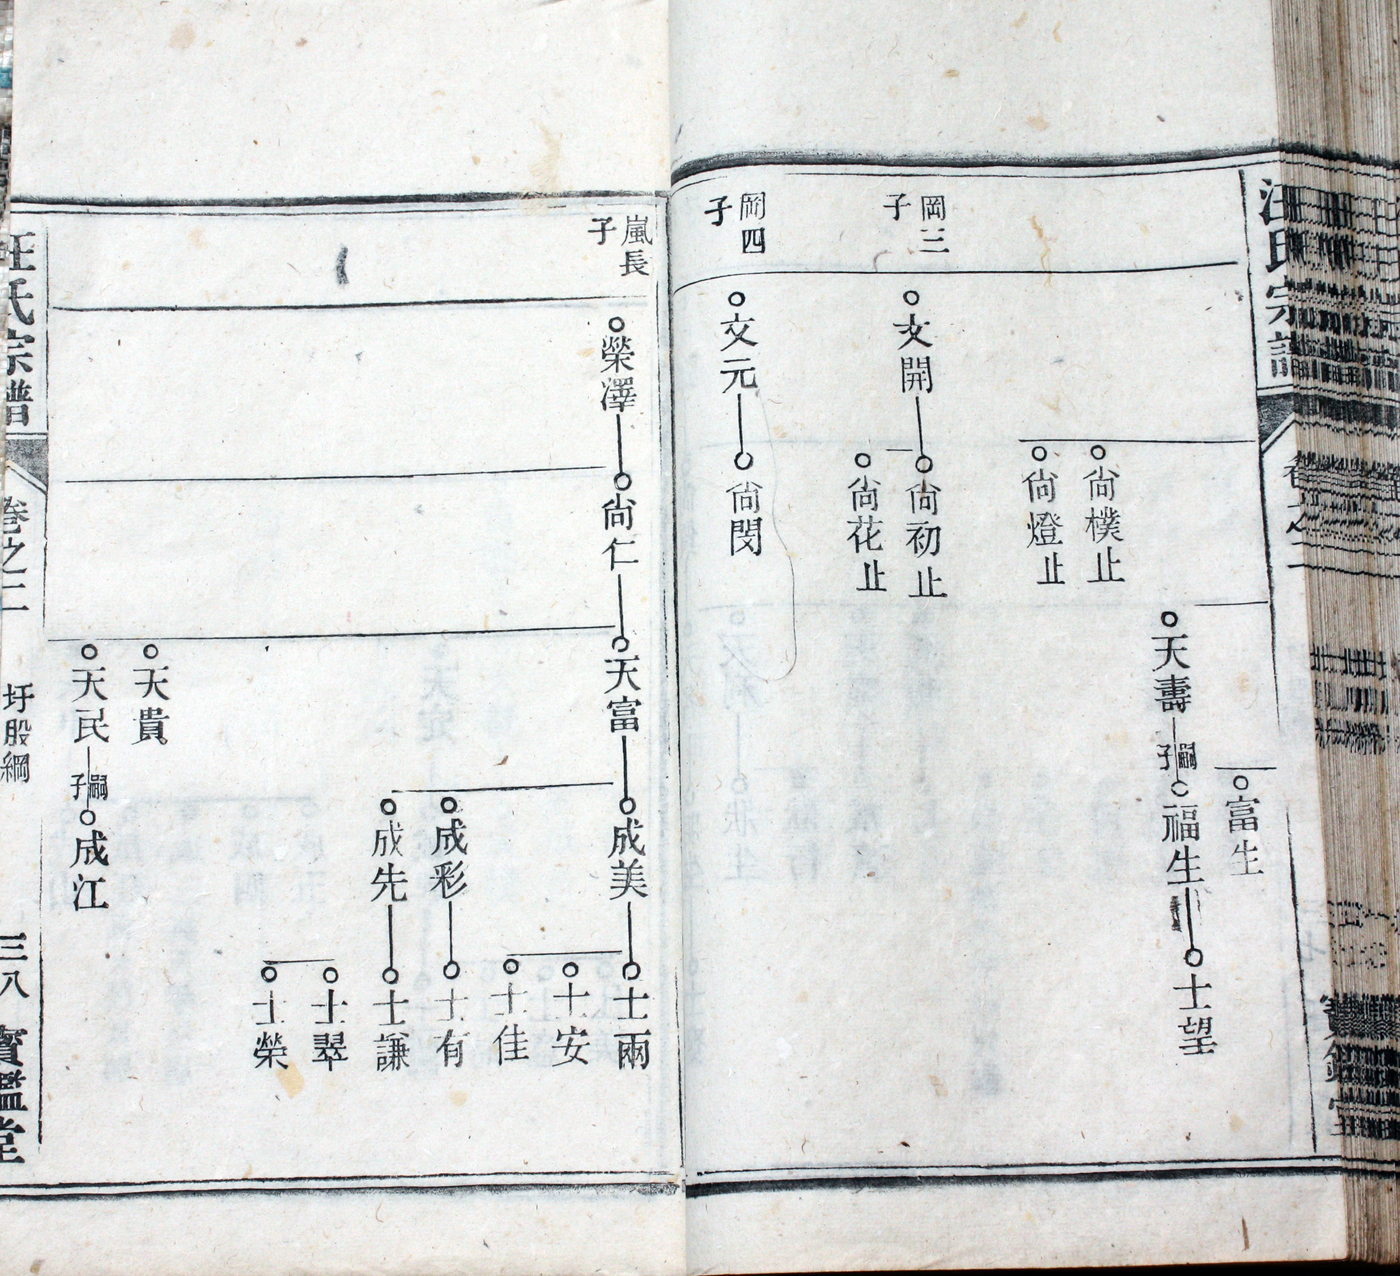 汪氏宗譜
卷之二
富生
天壽
嗣子
福生
士望
尙樸止
尙燈止
岡三子
文開
尙初止
尙花止
岡四子
文元
尙閔
嵐長子
榮澤
尙仁
天富
成美
士爾
士安
士佳
成彩
士有
成先
士謙
士翠
士榮
天貴
天民
嗣子
成江
汪氏宗譜
卷之二
圩股綱
三八
寶鑑堂